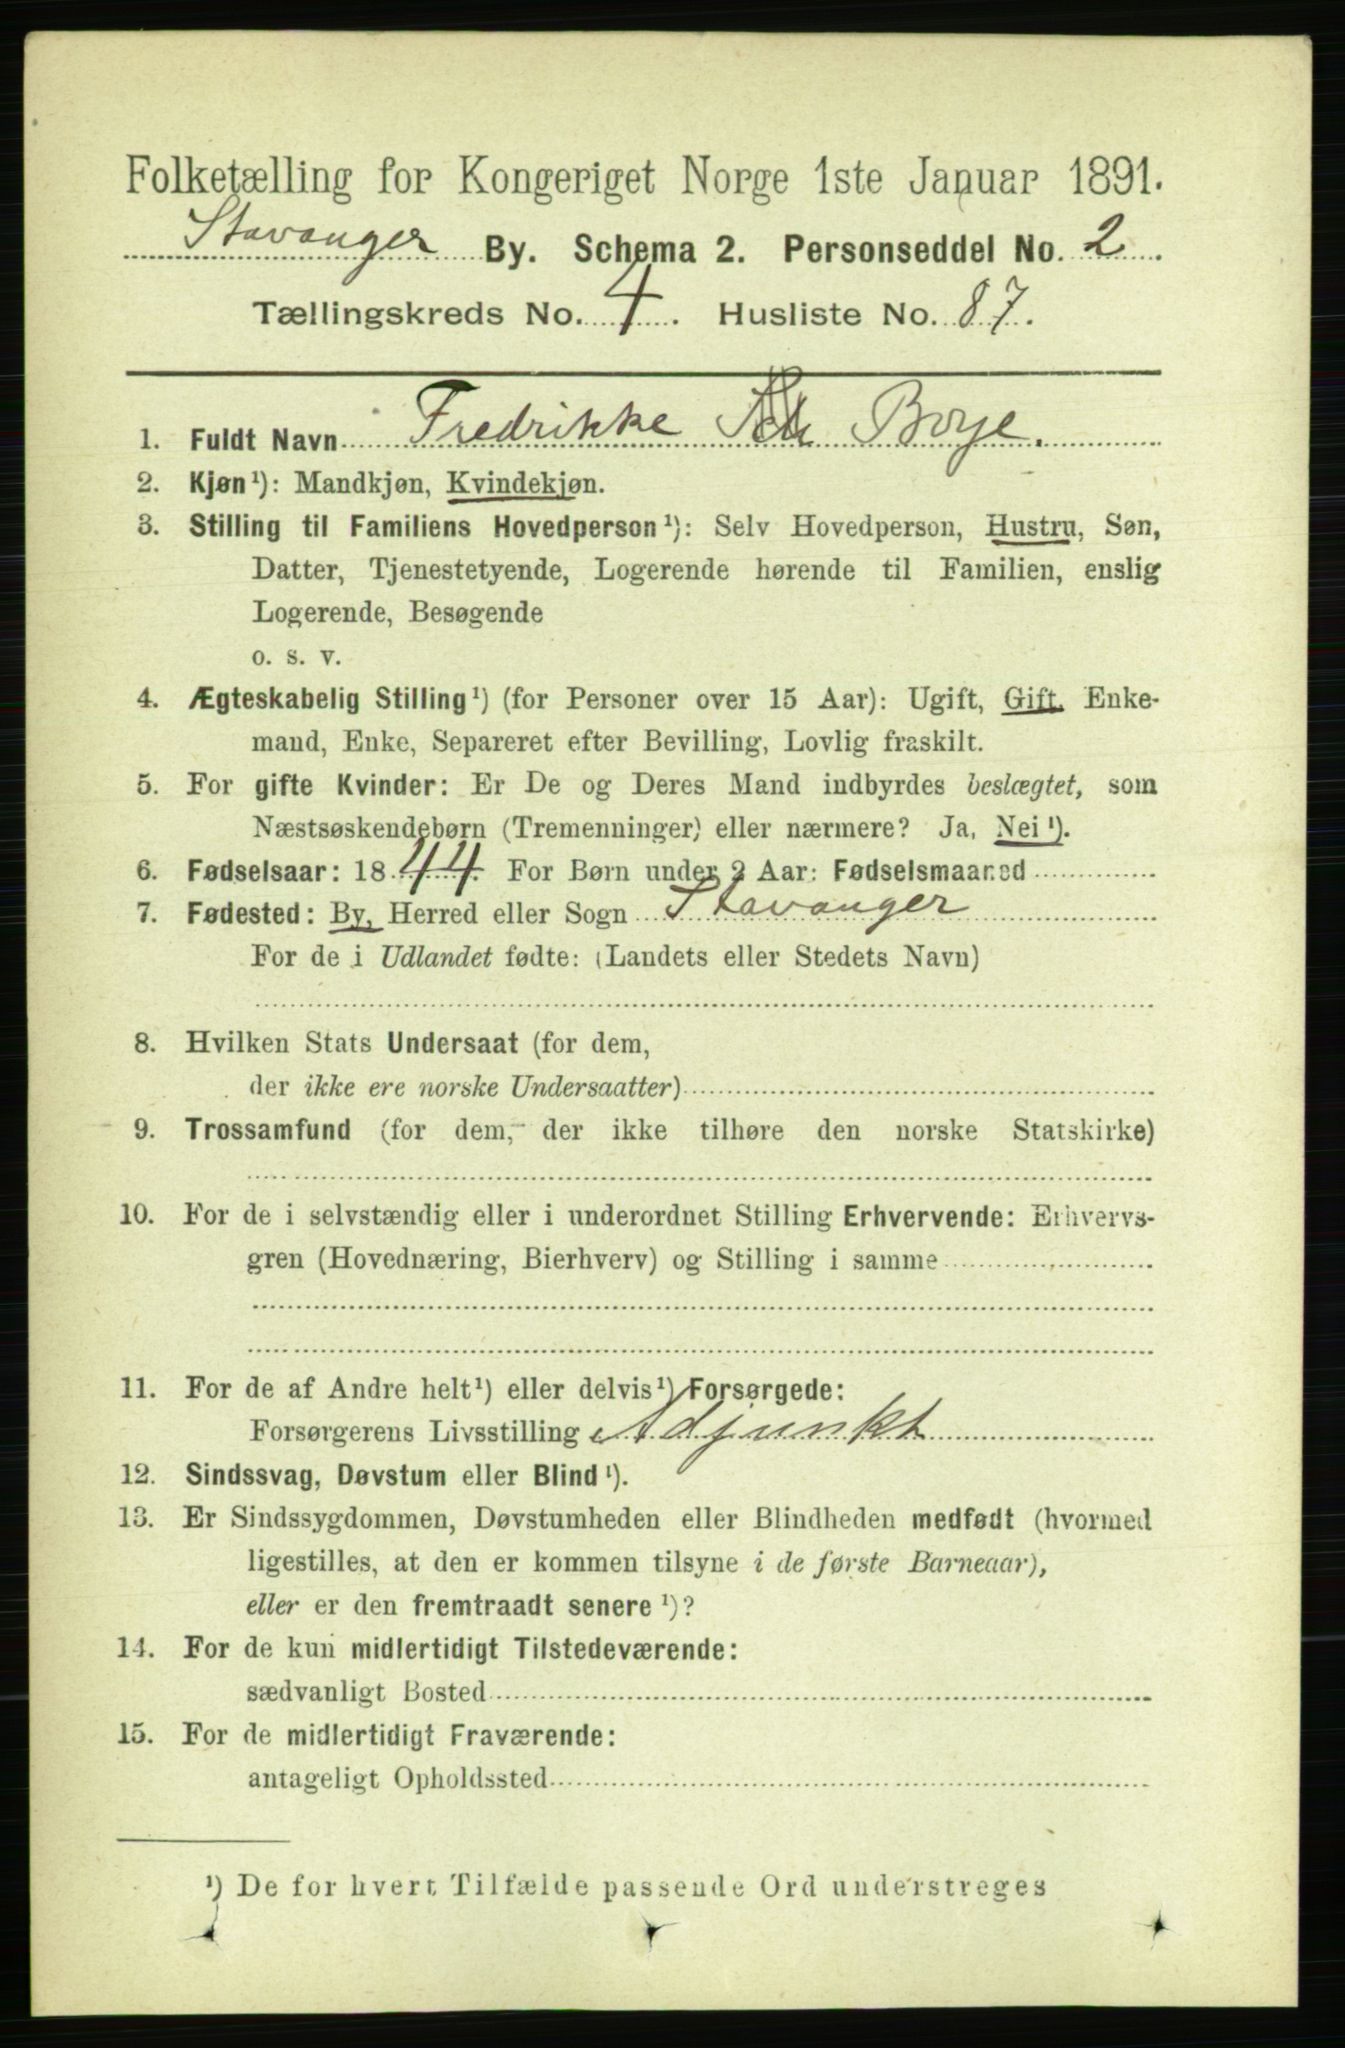 Folketælling for Kongeriget Norge 1ste Januar 1891.
Stavanger By. Schema 2. Personseddel No. 2.
Tællingskreds No. 4. Husliste No. 87.
1. Fuldt Navn Fredrikke Sch Boye.
2. Kjøn¹): Mandkjøn, Kvindekjøn.
3. Stilling til Familiens Hovedperson¹): Selv Hovedperson, Hustru, Søn,
Datter, Tjenestetyende, Logerende hørende til Familien, enslig
Logerende, Besøgende
o. s. v.
4. Ægteskabelig Stilling¹) (for Personer over 15 Aar): Ugift, Gift, Enke-
mand, Enke, Separeret efter Bevilling, Lovlig fraskilt.
5. For gifte Kvinder: Er De og Deres Mand indbyrdes beslægtet, som
Næstsøskendebørn (Tremenninger) eller nærmere? Ja, Nei¹).
6. Fødselsaar: 1844. For Børn under 2 Aar: Fødselsmaaned
7. Fødested: By, Herred eller Sogn Stavanger
For de i Udlandet fødte: (Landets eller Stedets Navn)
8. Hvilken Stats Undersaat (for dem,
der ikke ere norske Undersaatter)
9. Trossamfund (for dem, der ikke tilhøre den norske Statskirke)
10. For de i selvstændig eller i underordnet Stilling Erhvervende: Erhvervs-
gren (Hovednæring, Bierhverv) og Stilling i samme
11. For de af Andre helt¹) eller delvis¹) Forsørgede:
Forsørgerens Livsstilling Adjunkt
12. Sindssvag, Døvstum eller Blind¹).
13. Er Sindssygdommen, Døvstumheden eller Blindheden medfødt (hvormed
ligestilles, at den er kommen tilsyne i de første Barneaar),
eller er den fremtraadt senere¹)?
14. For de kun midlertidigt Tilstedeværende:
sædvanligt Bosted
15. For de midlertidigt Fraværende:
antageligt Opholdssted
¹) De for hvert Tilfælde passende Ord understreges